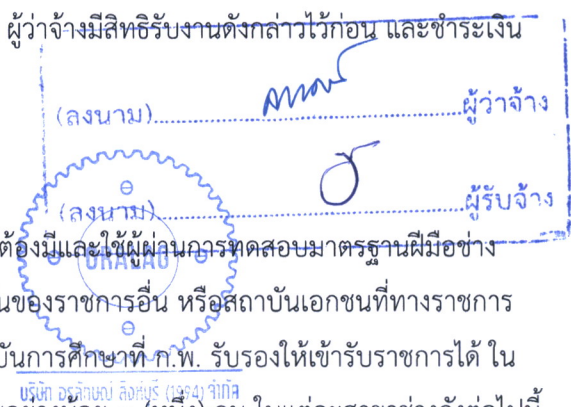 ผู้ว่าจ้างมีสิทธิรับงานดังกล่าวไว้ก่อน และชำระเงิน
(ลงนาม)..............................ผู้ว่าจ้าง
(ลงนาม)..............................ผู้รับจ้าง
ต้องมีและใช้ผู้ผ่านการทดสอบมาตรฐานฝีมือช่าง
นของราชการอื่น หรือสถาบันเอกชนที่ทางราชการ
บันการศึกษาที่ ก.พ. รับรองให้เข้ารับราชการได้ ใน
บริษัท อรลักษณ์ สิงห์บุรี (1994) จำกัด
(หนึ่ง) คน ในแต่ละสาขาช่างดังต่อไปนี้